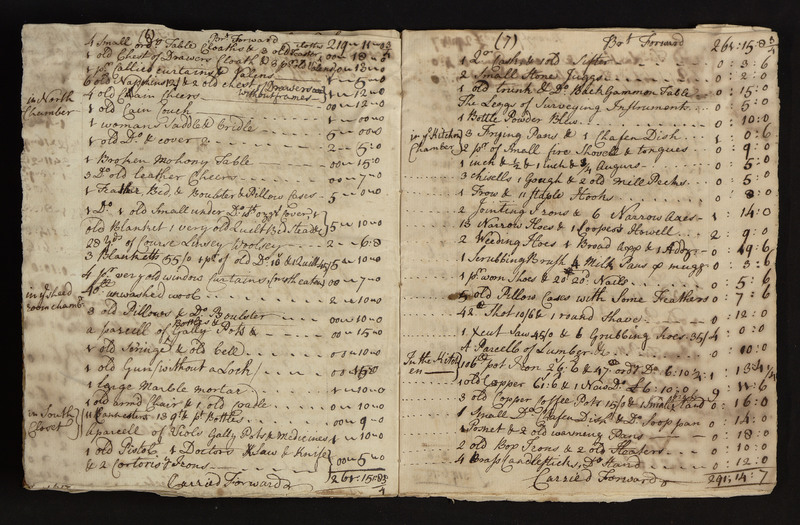 (6)
Bot Forward 219 " 11 " 0 3/4
4 Small ordy Table Cloaths & 3 old
1 old Chest of Drawers Cloath &
1 pr Callico Curtains & Valens
6 old Napkins & 2 old chest of Drawers
without frames 1 " 12 " 0
in North
Chamber
4 old Chairs 00 " 12 " 0
1 old Cain Couch 1 " 00 " 0
1 womans Saddle & bridle 5 " 00 " 0
1 old Do & cover 2 2 " 5 " 0
1 Broken Mohony Table 00 " 15 " 0
3 Do old leather Cheers 00 " 7 " 0
1 Feather Bed, & Boulster & Pillow Cases 5 " 0 " 0
1 Do 1 old Small under Do
old Blanket 1 very old Quilt Bed Stead & 5 " 10 " 0
28 yds of Course Linsey Woolsey 2 " 6 : 8
3 Blanketts 55/0 1 pr of old Do 10 & Quilt 45/ 5 " 10 " 0
4 pr very old window Curtains 00 " 7 " 0
in ye Shed
room chambr
40 lb unwashed wool 2 " 10 " 0
3 old Pillows & Do Boulster 00 " 10 " 0
a parcell of Gally Pots & Bottles & 00 " 15 " 0
1 old Syringe & old bell 0 " 10 " 0
1 old Gun (without a Lock)
1 large Marble mortar 1 " 10 " 0
in South
Closet
1 old armd Chair & 1 old 0 " 10 " 0
11 Cannesters 13 qt & pt Bottles 00 " 9 " 0
a parcell of Viols Gally Pots & Medicines 1 " 10 " 0
1 old Pistol 1 Doctors Saw & Knife
& 2 Irons 00 " 5 " 0
Carried Forward 261 : 15 : 8 3/4
(7)
Bot Forward 261 : 15 : 8 3/4
1 Do Cash & old Sifter 0 : 3 : 6
2 Small Stone Juggs 0 : 2 : 0
1 old trunk & Do Back Gammon Table 0 : 15 : 0
The Legs of Surveying Instruments 0 : 5 : 0
1 Bottle Powder Blue 0 : 10 : 0
in ye Kitchn
Chamber
3 Frying Pans & 1 Chafen Dish 1 : 0 : 6
2 pr of Small fire Shovels & tongues 0 : 9 : 0
1 inch & 1/2 & 1 inch & 3/4 Augurs 0 : 5 : 0
3 chisells 1 Gough & 2 old Mill Pecks 0 : 5 : 0
1 Frow & 11 staple Hooks 0 : 8 : 0
2 Jointing Irons & 6 Narrow Axes 1 : 14 : 0
18 Narrow Hoes & 1 Coopers Howell 2 : 9 : 0
2 Weeding Hoes 1 Broad Axx & 1 Adze 0 : 19 : 6
1 Scrubbing Brush 4 Milk Pans & mugg 0 : 3 : 6
1 pr worn Shoes & 20 20d Nails 0 : 5 : 6
5 old Pillow Cases with Some Feathers 0 : 7 : 6
42 lb Shot 10/6 & 1 round Shave 0 : 12 : 0
1 Xcut Saw 45/0 & 6 Grubbing Hoes 35/ 4 : 0 : 0
A Parcell of Lumber & 0 : 10 : 0
In the Kitch
en
116 lb pot Iron
1 old Copper
3 old Copper Coffee Pots 15/0 & 1 Small 0 : 16 : 0
1 Small Do Chafen Dish & Do Soop pan 0 : 14 : 0
1 Posnet & 2 old warming Pans 0 : 18 : 0
2 old Box Irons & 2 old Heaters 0 : 10 : 0
4 Brass Candlesticks, Do Stand 0 : 12 : 0
Carried Forward 291 : 14 : 7